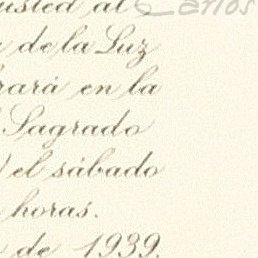 usted al Carlos
de la Luz
rará en la
Sagrado
) el sábado
horas.
de 1939.